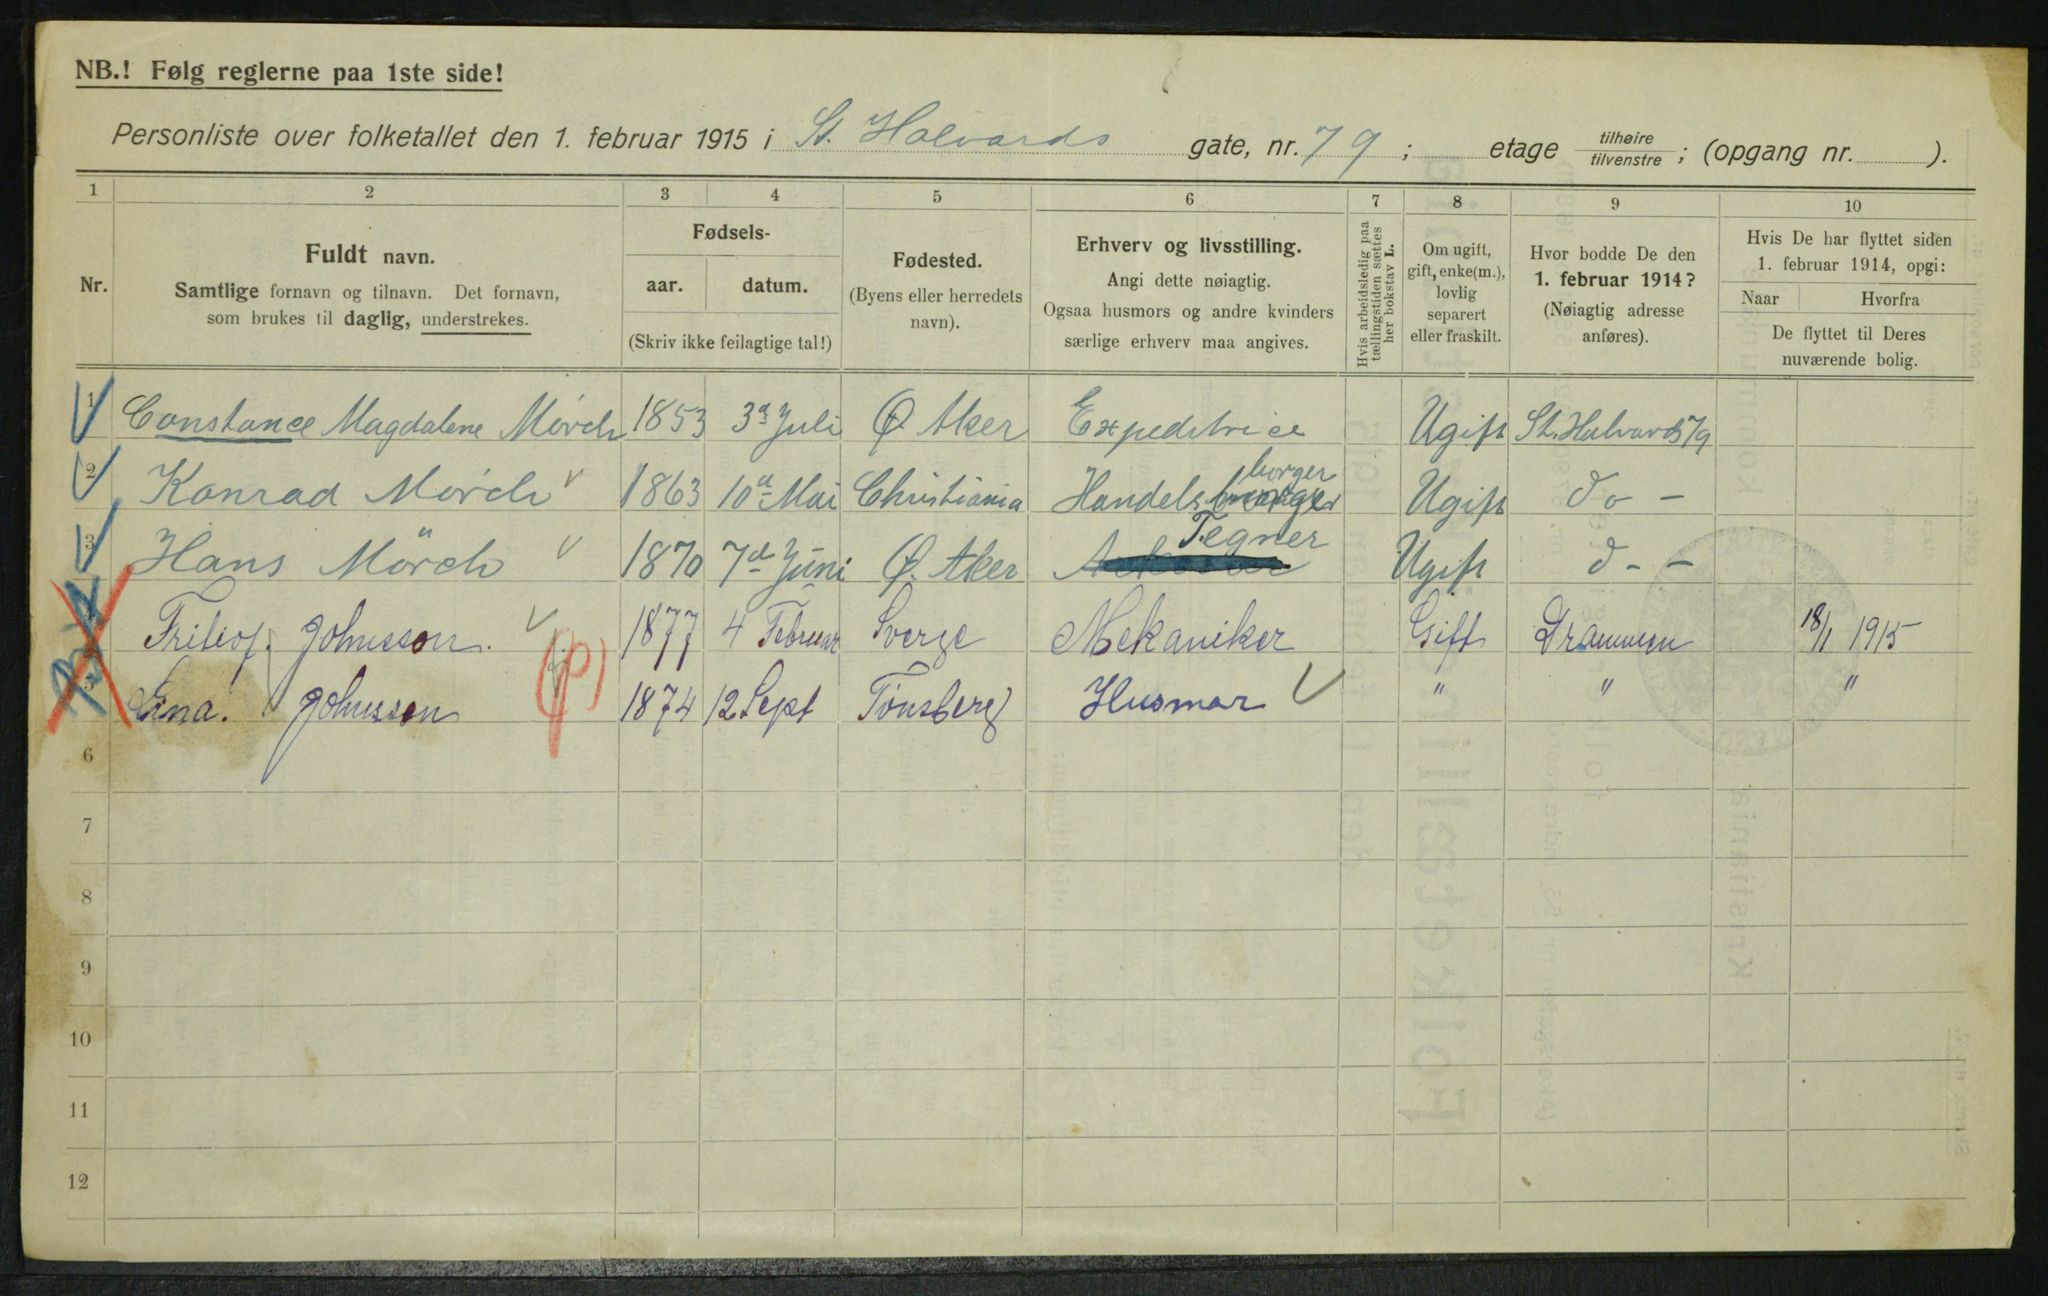 NB.! Følg reglerne paa 1ste side!
Personliste over folketallet den 1. februar 1915 i St. Halvards gate, nr. 79; etage tilhøire tilvenstre; (opgang nr. ).
1 2 3 4 5 6 7 8 9 10
Nr.
Fuldt navn.
Samtlige fornavn og tilnavn. Det fornavn,
som brukes til daglig, understrekes.
Fødsels-
aar. datum.
(Skriv ikke feilagtige tal!)
Fødested.
(Byens eller herredets
navn).
Erhverv og livsstilling.
Angi dette nøiagtig.
Ogsaa husmors og andre kvinders
særlige erhverv maa angives.
Hvis arbeidsledig paa
tællingstiden sættes
her bokstav L.
Om ugift,
gift, enke(m.),
lovlig
separert
eller fraskilt.
Hvor bodde De den
1. februar 1914?
(Nøiagtig adresse
anføres).
Hvis De har flyttet siden
1. februar 1914, opgi:
Naar Hvorfra
De flyttet til Deres
nuværende bolig.
1 Constance Magdalene Mörch 1853 3d Juli Ø Aker Expeditrice Ugift St. Halvards 79
2 Konrad Mörch 1863 10d Mai Christiania Handelsborger Ugift do -
3 Hans Mörch 1870 7d Juni Ø. Aker Tegner Ugift d - -
Fritiof. Johnsson. 1877 4 Februar Sverge Mekaniker Gift Drammen 18/1 1915
5 Gina. Johnsson (p) 1874 12 Sept Tønsberg Husmor " " "
6
7
8
9
10
11
12